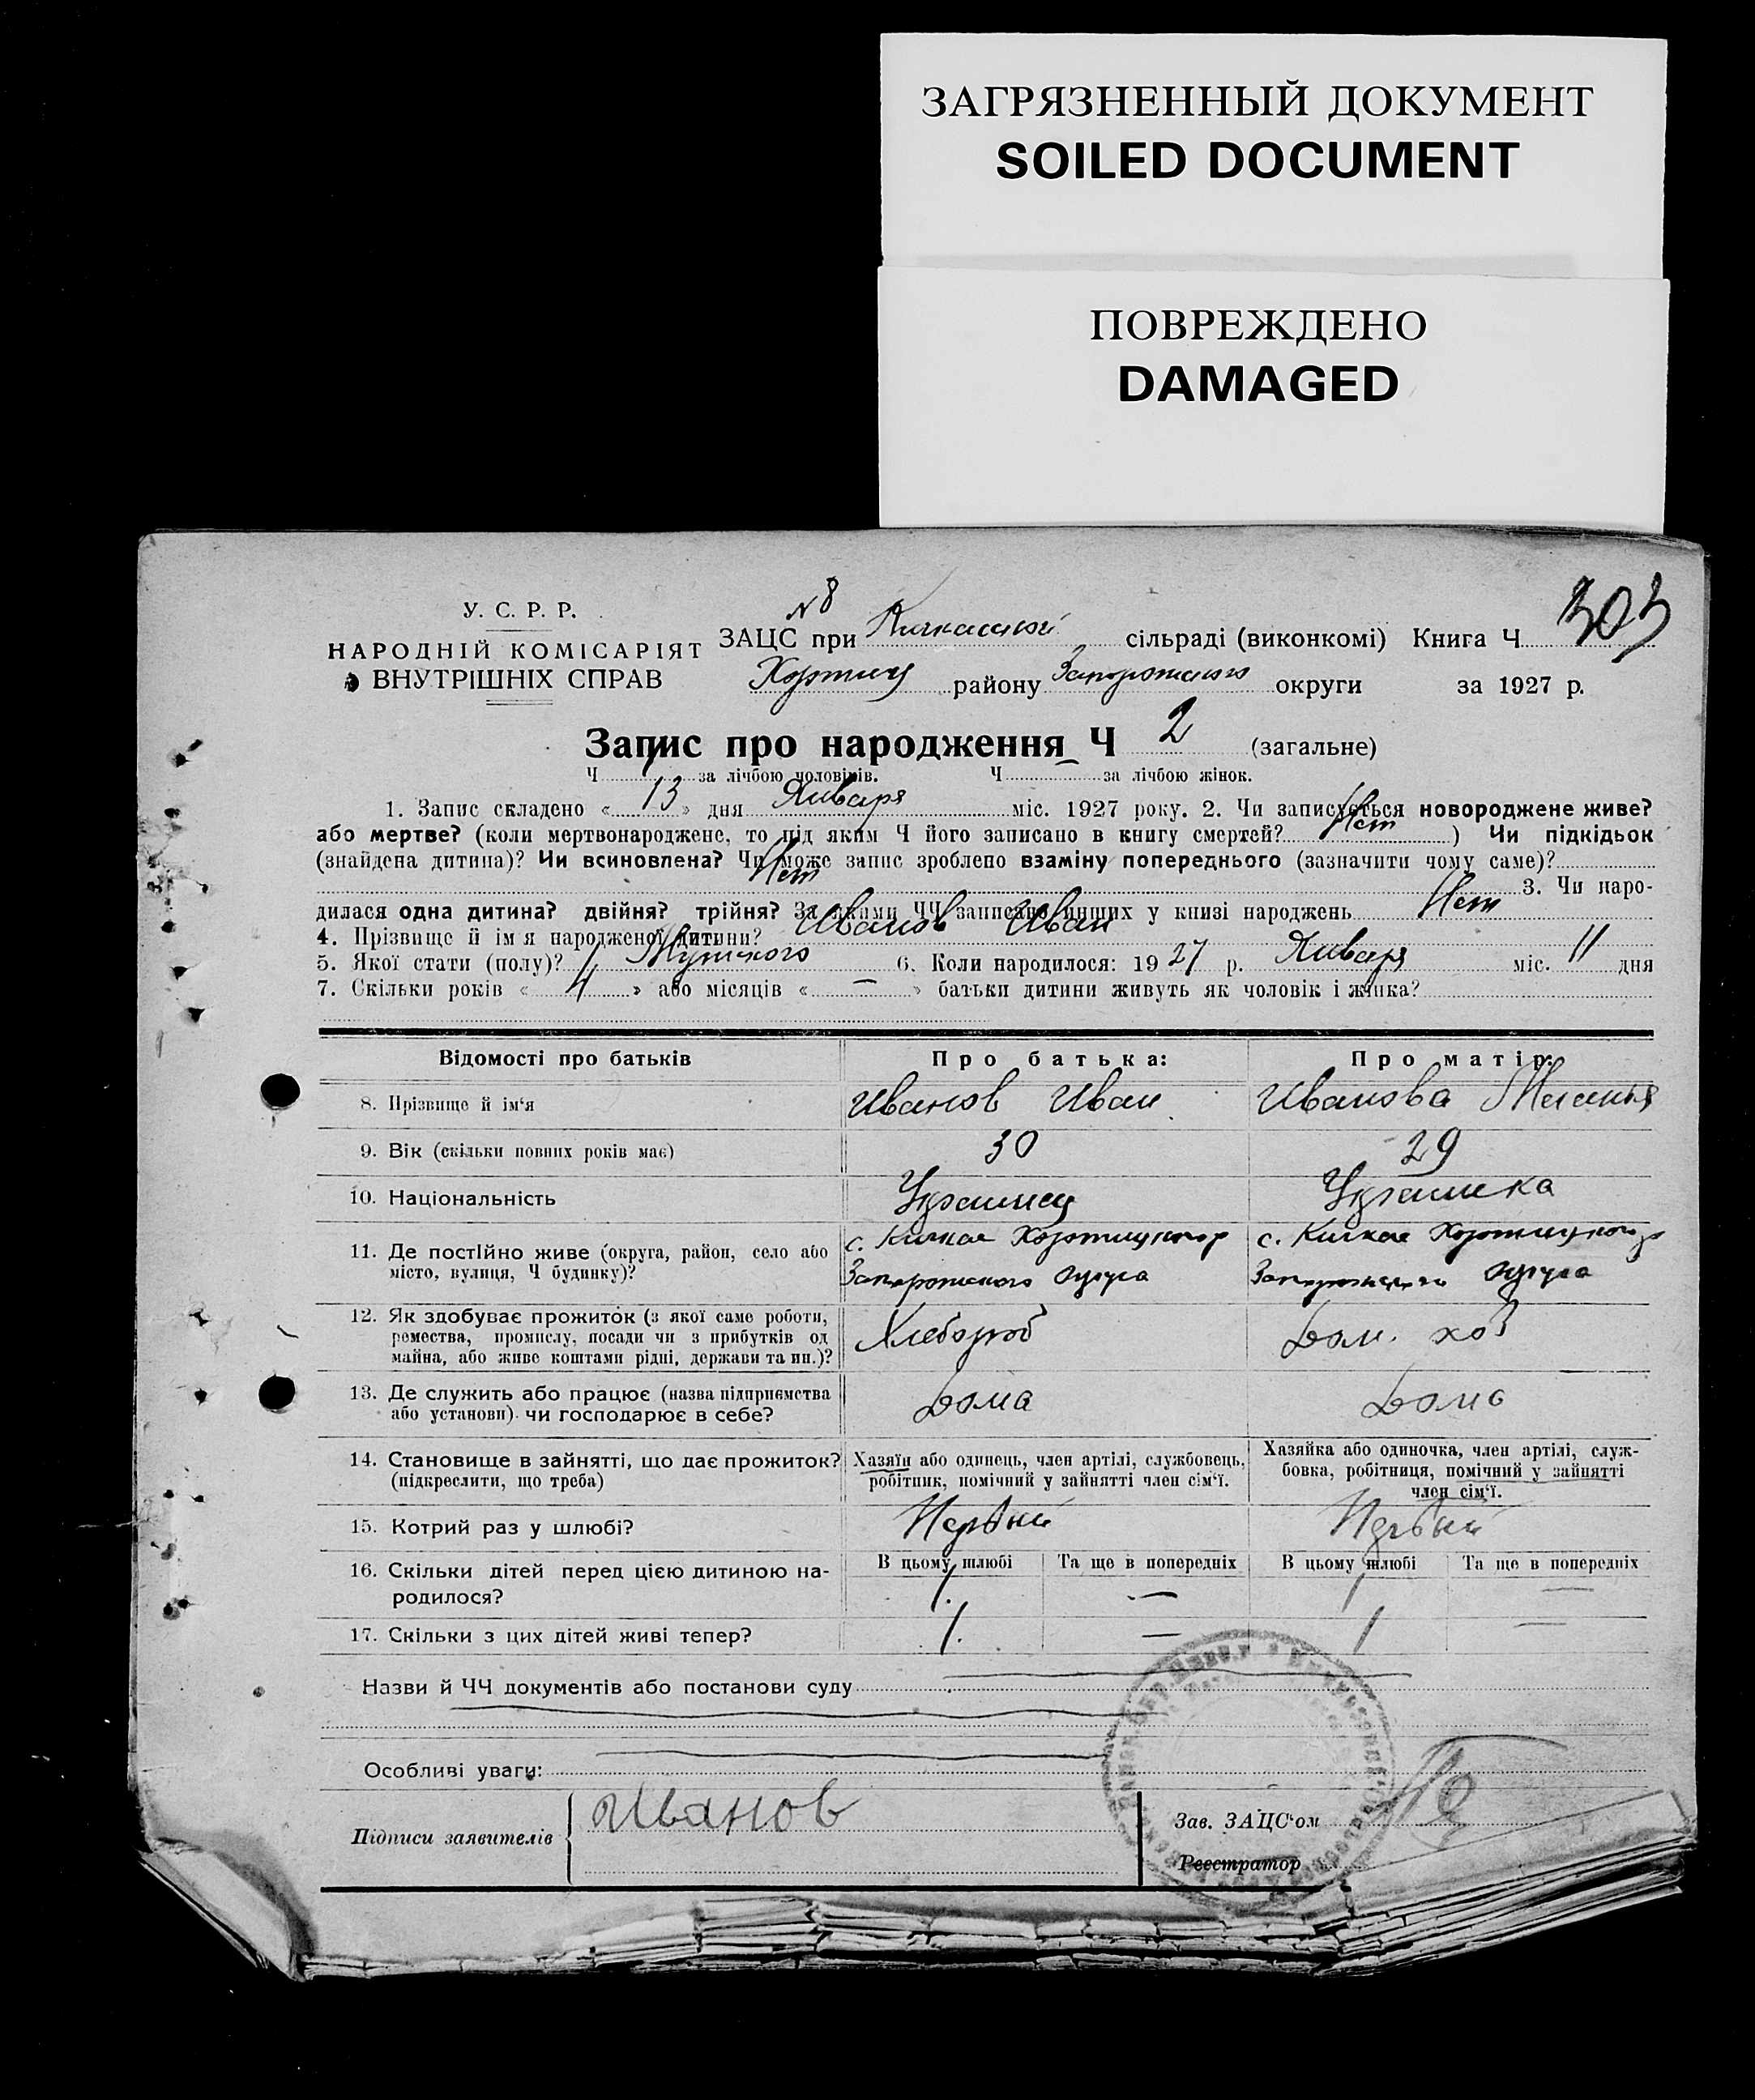 ЗАГРЯЗНЕННЫЙ ДОКУМЕНТ
SOILED DOCUMENT
ПОВРЕЖДЕНО
DAMAGED
У. С. Р. Р.
НАРОДНІЙ КОМІСАРІЯТ
ВНУТРІШНІХ СПРАВ
N 8
ЗАЦС при Кичкасской сільраді (виконкомі) Книга Ч 303
Хортиц району Запорожского округи за 1927 р.
Запис про народження Ч 2 (загальне)
Ч 1 за лічбою чоловіків. Ч — за лічбою жінок.
1. Запис складено « 13 » дня Января міс. 1927 року. 2. Чи записується новороджене живе?
або мертве? (коли мертвонароджене, то під яким Ч його записано в книгу смертей? Нет ) Чи підкідьок
(знайдена дитина)? Чи всиновлена? Чи може запис зроблено взаміну попереднього (зазначити чому саме)?
Нет 3. Чи наро-
дилася одна дитина? двійня? трійня? За якими ЧЧ записано инших у книзі народжень Нет
4. Прізвище й ім'я народженої дитини? Иванов Иван
5. Якої стати (полу)? Мужского 6. Коли народилося: 1927 р. Января міс. 11 дня
7. Скільки років « 4 » або місяців « — » батьки дитини живуть як чоловік і жінка?
Відомості про батьків Про батька: Про матір:
8. Прізвище й ім'я Иванов Иван Иванова Мелания
9. Вік (скільки повних років має) 30 29
10. Національність Украинец Украинка
11. Де постійно живе (округа, район, село або
місто, вулиця, Ч будинку)?
с. Кичкас Хортицкого р
Запорожского округа
с. Кичкас Хортицкого р
Запорожского округа
12. Як здобуває прожиток (з якої саме роботи,
ремества, промислу, посади чи з прибутків од
майна, або живе коштами рідні, держави та ин.)?
Хлебороб Дом. хоз
13. Де служить або працює (назва підприємства
або установи) чи господарює в себе?
Дома Дома
14. Становище в зайнятті, що дає прожиток?
(підкреслити, що треба)
Хазяїн або одинець, член артілі, службовець,
робітник, помічний у зайнятті член сім'ї.
Хазяйка або одиночка, член артілі, служ-
бовка, робітниця, помічний у зайнятті
член сім'ї.
15. Котрий раз у шлюбі? Первый Первый
16. Скільки дітей перед цією дитиною на-
родилося?
В цьому шлюбі Та ще в попередніх В цьому шлюбі Та ще в попередніх
1. — 1 —
17. Скільки з цих дітей живі тепер? 1. — 1 —
Назви й ЧЧ документів або постанови суду
Особливі уваги:
Підписи заявителів Иванов
Зав. ЗАЦС'ом
Реєстратор